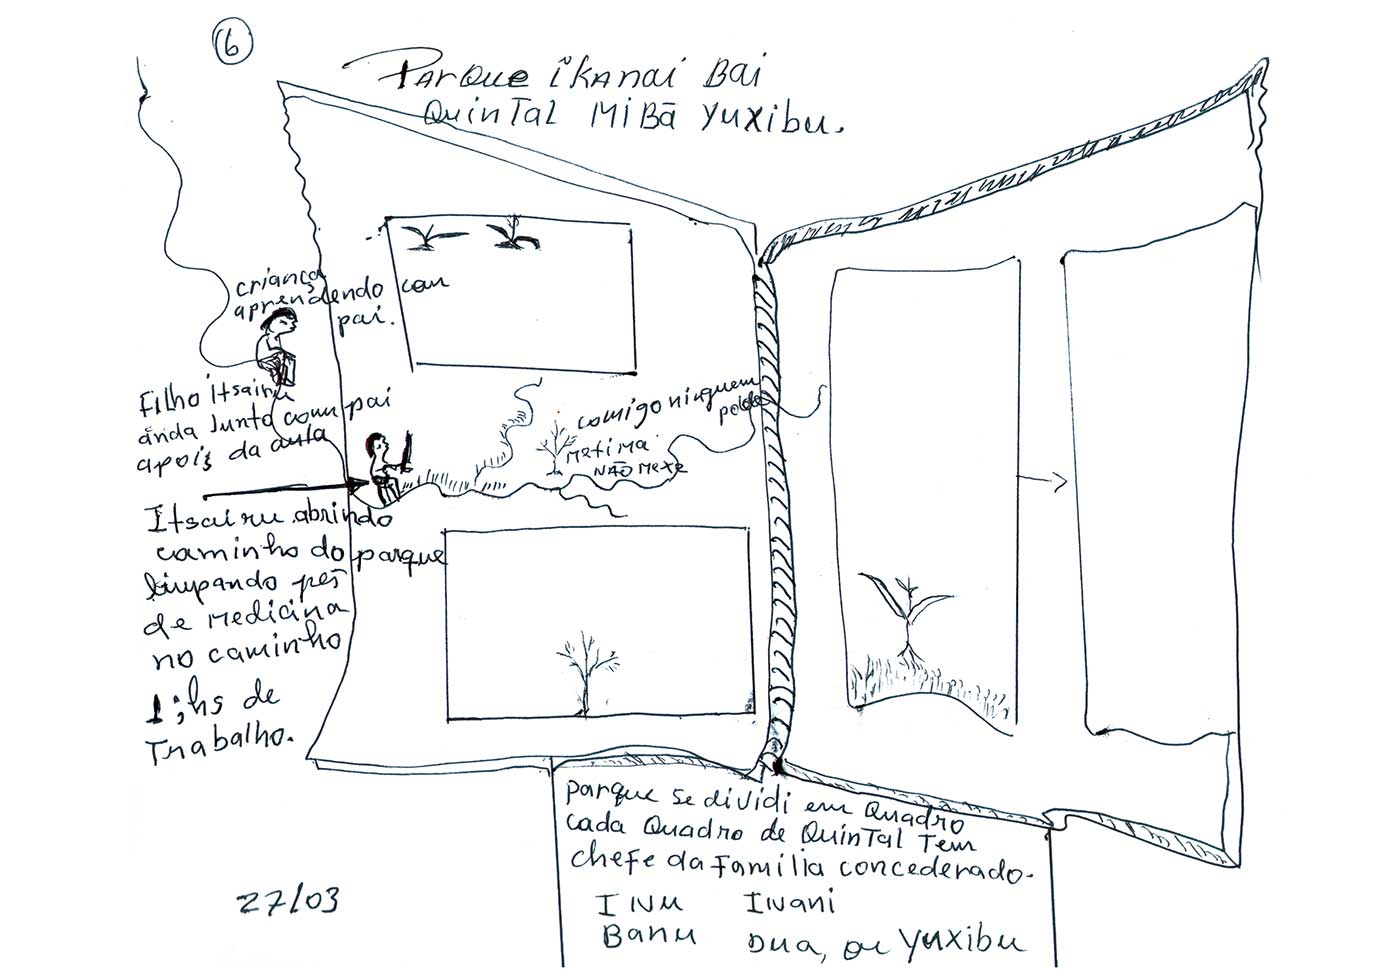 6
PARQUE ÎKANAI BAI
QUINTAL MIBÃ YUXIBU.
criança
aprendendo com
pai.
Filho itsairu
anda junto com pai
apois da aula
comigo ninguem
pode
metima
NÃO MEXE
Itsairu abrindo
caminho do parque
limpando pés
de medicina
no caminho
1;hs de
Trabalho.
parque se dividi em Quadro
cada Quadro de Quintal Tem
chefe da Familia concederado.
INU INANI
BANU DUA, ou YUXIBU
27/03